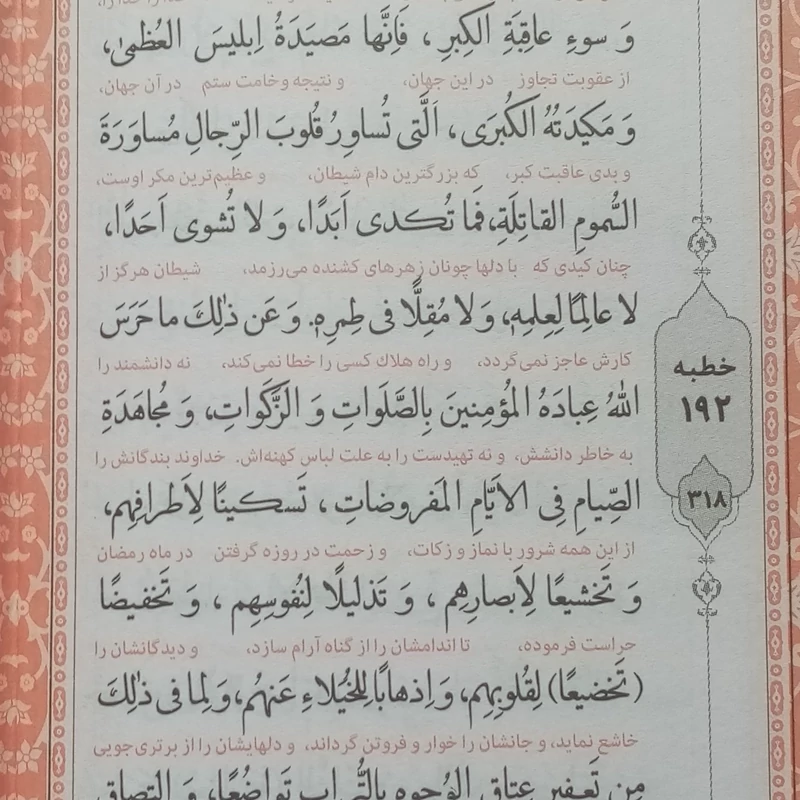 وَ سوءِ عاقِبَةِ الكِبرِ ، فَاِنَّها مَصيَدَةُ اِبليسَ العُظمیٰ،
از عقوبت تجاوز در این جهان، و نتیجه وخامت ستم در آن جهان،
وَ مَکیدَتُهُ الکُبرَی ، اَلَّتی تُساوِرُ قُلوبَ الرِّجالِ مُساوَرَةَ
و بدی عاقبت کبر، که بزرگترین دام شیطان، و عظیم‌ترین مکر اوست،
السُّمومِ القاتِلَةِ، فَما تُکدی اَبَدًا، وَ لا تُشوی اَحَدًا،
چنان کیدی که با دلها چونان زهرهای کشنده می‌رزمد، شیطان هرگز از
لا عالِمًا لِعِلمِهٖ، وَ لا مُقِلًّا فی طِمرِهٖ. وَ عَن ذٰلِكَ ما حَرَسَ
کارش عاجز نمی‌گردد، و راه هلاك کسی را خطا نمی‌کند، نه دانشمند را
خطبه
۱۹۲
اللهُ عِبادَهُ المُؤمِنینَ بِالصَّلَواتِ وَ الزَّکَواتِ، وَ مُجاهَدَةِ
به خاطر دانشش، و نه تهیدست را به علت لباس کهنه‌اش. خداوند بندگانش را
الصِّیامِ فِی الاَیّامِ المَفروضاتِ ، تَسکینًا لِاَطرافِهِم،
۳۱۸
از این همه شرور با نماز و زکات، و زحمت در روزه گرفتن در ماه رمضان
وَ تَخشیعًا لِاَبصارِهِم ، وَ تَذلیلًا لِنُفوسِهِم ، وَ تَخفیضًا
حراست فرموده، تا اندامشان را از گناه آرام سازد، و دیدگانشان را
(تَخضیعًا) لِقُلوبِهِم، وَ اِذهابًا لِلخُیَلاءِ عَنهُم، وَ لِما فی ذٰلِكَ
خاشع نماید، و جانشان را خوار و فروتن گرداند، و دلهایشان را از برتری‌جویی
مِن تَعفیرِ عِتاقِ الوُجوهِ بِالتُّرابِ تَواضُعًا، وَ التِصاقِ